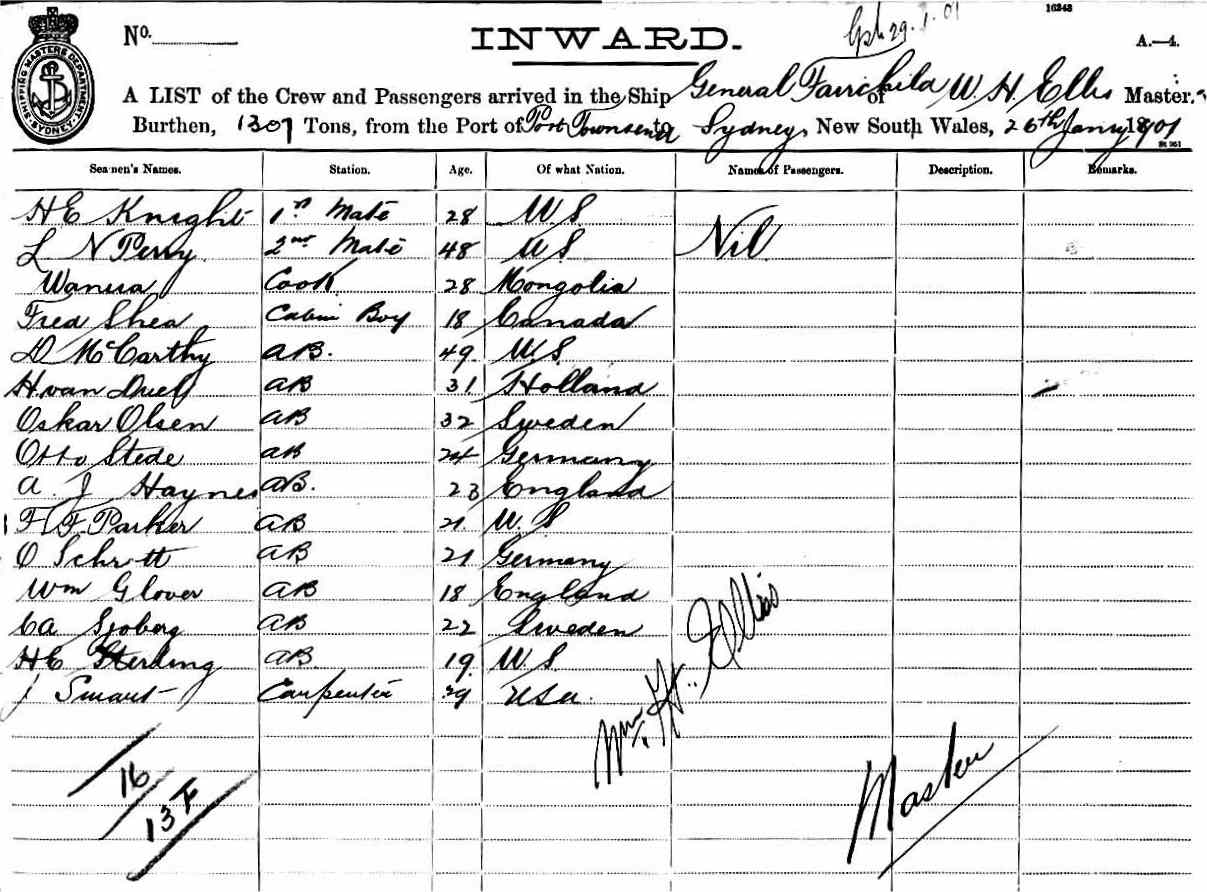 16248
No.
INWARD.
29.1.01
A.—4.
SHIPPING MASTERS DEPARTMENT SYDNEY
A LIST of the Crew and Passengers arrived in the Ship General Fairchild of W. H. Ellis Master.
Burthen, 1307 Tons, from the Port of Port Townsend to Sydney, New South Wales, 26th Jany 1901
Seamen's Names. Station. Age. Of what Nation. Names of Passengers. Description. Remarks.
H E Knight 1st Mate 28 U S Nil
L N Perry 2nd Mate 48 U S
Cook 28 Mongolia
Fred Shea Cabin Boy 18 Canada
D McCarthy AB. 49 U.S.
H. van AB 31 Holland
Oskar Olsen AB 32 Sweden
Otto Stede AB 24 Germany
A. J Haynes AB. 23 England
F. Parker AB 21 U. S
O AB 21 Germany
Wm Glover AB 18 England
CA Sjoberg AB 22 Sweden
HE Sterling AB 19 U. S
J Smart Carpenter 39 USA.
Wm. H. Ellis
Master
16
13 F